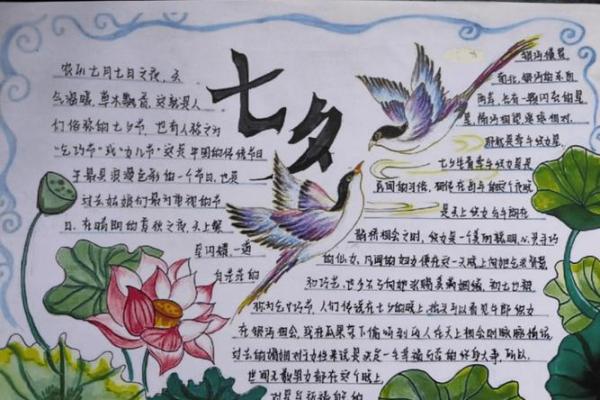 七夕
农历七月七日之夜，天
气温暖，草木飘香，这就是人
们俗称的七夕节，也有人称之为
"乞巧节"或"女儿节"这是中国的传统节日
中最具浪漫色彩的一个节日，也是
过去姑娘们最为重视的节
日。在晴朗的夏秋之夜，天上繁
星闪耀，一道
白茫茫的
银河横贯
南北，银河的东西
两岸，各有一颗闪亮的星
星，隔河相望，遥遥相对，
那就是牵牛
七夕坐看牵牛织女星是
民间的习俗，相传在每年的这个夜晚
是天上织女与牛郎在
鹊桥相会之时，织女是一个美丽聪明、心灵手巧
的仙女，凡间的妇女便在这一天晚上向她乞求智慧
和巧艺，也少不了向她求赐美满姻缘，
称为乞巧节，人们传说在七夕的晚上，抬头可以看见牛郎织女
在银河相会，或在瓜果架下偷听到两人在天上相会时脉脉情话
过去的婚姻对于女性来说是决定一生幸福与否的终身大事，所以，
世间无数男女都在这个晚上
对星空祈祷